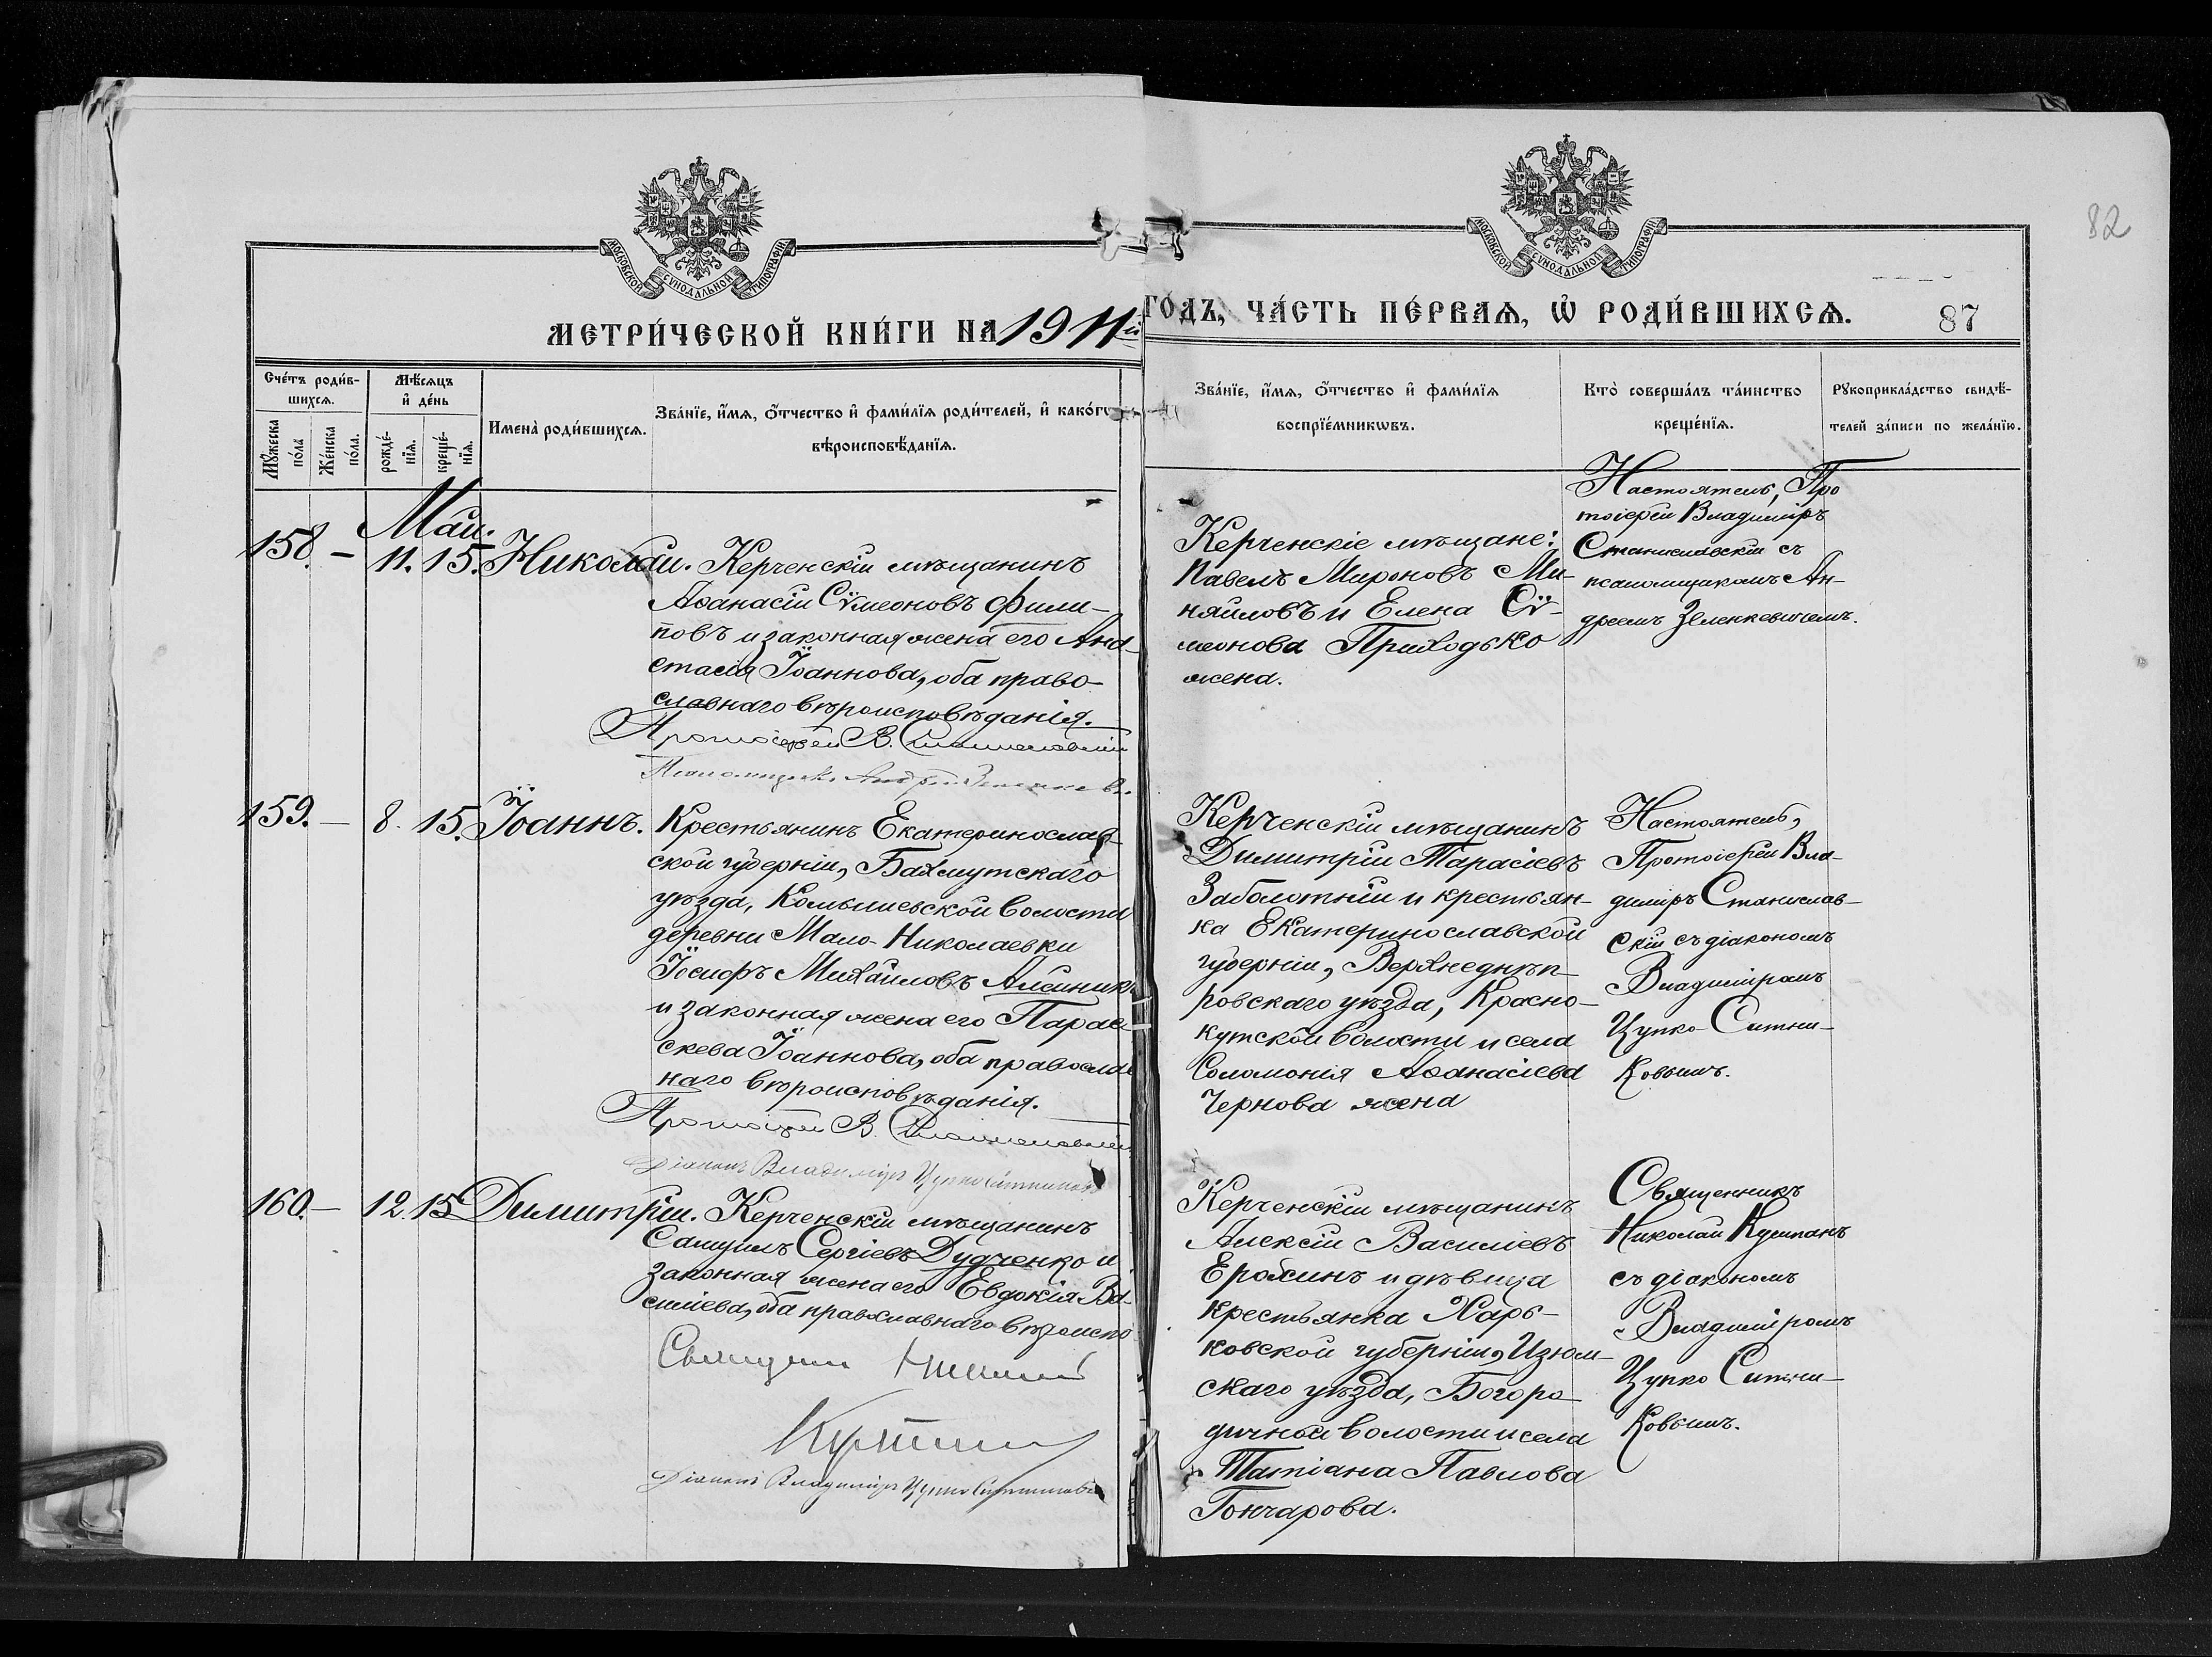 82
МОСКОВСКОЙ СѴНОДАЛЬНОЙ ТИПОГРАФІИ
МОСКОВСКОЙ СѴНОДАЛЬНОЙ ТИПОГРАФІИ
МЕТРИ́ЧЕСКОЙ КНИ́ГИ НА 1911й
ГО́ДЪ, ЧА́СТЬ ПЕ́РВАѦ, Ѡ҆ РОДИ́ВШИХСѦ.
87
Сче́тъ роди́в-
шихсѧ.
Мꙋ́жеска
по́ла
Же́нска
по́ла.
Мѣ́сѧцъ
и҆ де́нь
рожде́-
нїѧ.
креще́-
нїѧ.
Имена̀ роди́вшихсѧ.
Зва́нїе, и҆́мѧ, ѻ҆́тчество и҆ фами́лїѧ роди́телей, и҆ како́гѡ
вѣроисповѣ́данїѧ.
Зва́нїе, и҆́мѧ, ѻ҆́тчество и҆ фами́лїѧ
воспрїе́мникѡвъ.
Кто̀ соверша́лъ та́инство
креще́нїѧ.
Рꙋкоприкла́дство свидѣ́-
телей за́писи по жела́нїю.
Май.
158. - 11. 15. Николай.
Керченскій мѣщанинъ
Аѳанасій Сѵмеоновъ Фили-
повъ и законная жена его Ана-
стасія Іоаннова, оба право-
славнаго вѣроисповѣданія.
Протоіерей В. Станиславскій
Псаломщикъ Андрей
Керченскіе мѣщане:
Павелъ Мироновъ Ми-
няиловъ и Елена Сѵ-
меонова Приходько
жена.
Настоятель, Про
тоіерей Владиміръ
Станиславскій съ
псаломщикомъ Ан-
дреемъ Зеленкевичемъ.
159. - 8. 15. Іоаннъ.
Крестьянинъ Екатеринослав-
ской губерніи, Бахмутскаго
уѣзда, волости
деревни Мало-Николаевки
Іосифъ Михайловъ
и законная жена его Парас-
скева Іоаннова, оба православ
наго вѣроисповѣданія.
Протоіерей В. Станиславскій
Діаконъ Владиміръ Цупко Ситниковъ
Керченскій мѣщанинъ
Димитрій Тарасіевъ
Заболотній и крестьян-
ка Екатеринославской
губерніи, Верхнеднѣп-
ровскаго уѣзда, Красно-
кутской волости и села
Соломонія Аѳанасіева
Чернова жена
Настоятель,
Протоіерей Вла-
диміръ Станислав-
скій съ діакономъ
Владиміромъ
Цупко-Ситни-
ковымъ.
160. - 12. 15 Димитрій.
Керченскій мѣщанинъ
Самуилъ Сергіевъ Дудченко и
законная жена его Евдокія Ва-
силіева, оба православнаго вѣроиспо
Священникъ Николай
Діаконъ Владиміръ Цупко Ситниковъ
Керченскій мѣщанинъ
Алексій Василіевъ
Ерохинъ и дѣвица
крестьянка Харь-
ковской губерніи, Изюм-
скаго уѣзда, Богоро
дичной волости и села
Татіана Павлова
Гончарова.
Священникъ
Николай
съ діакономъ
Владиміромъ
Цупко Ситни-
ковымъ.